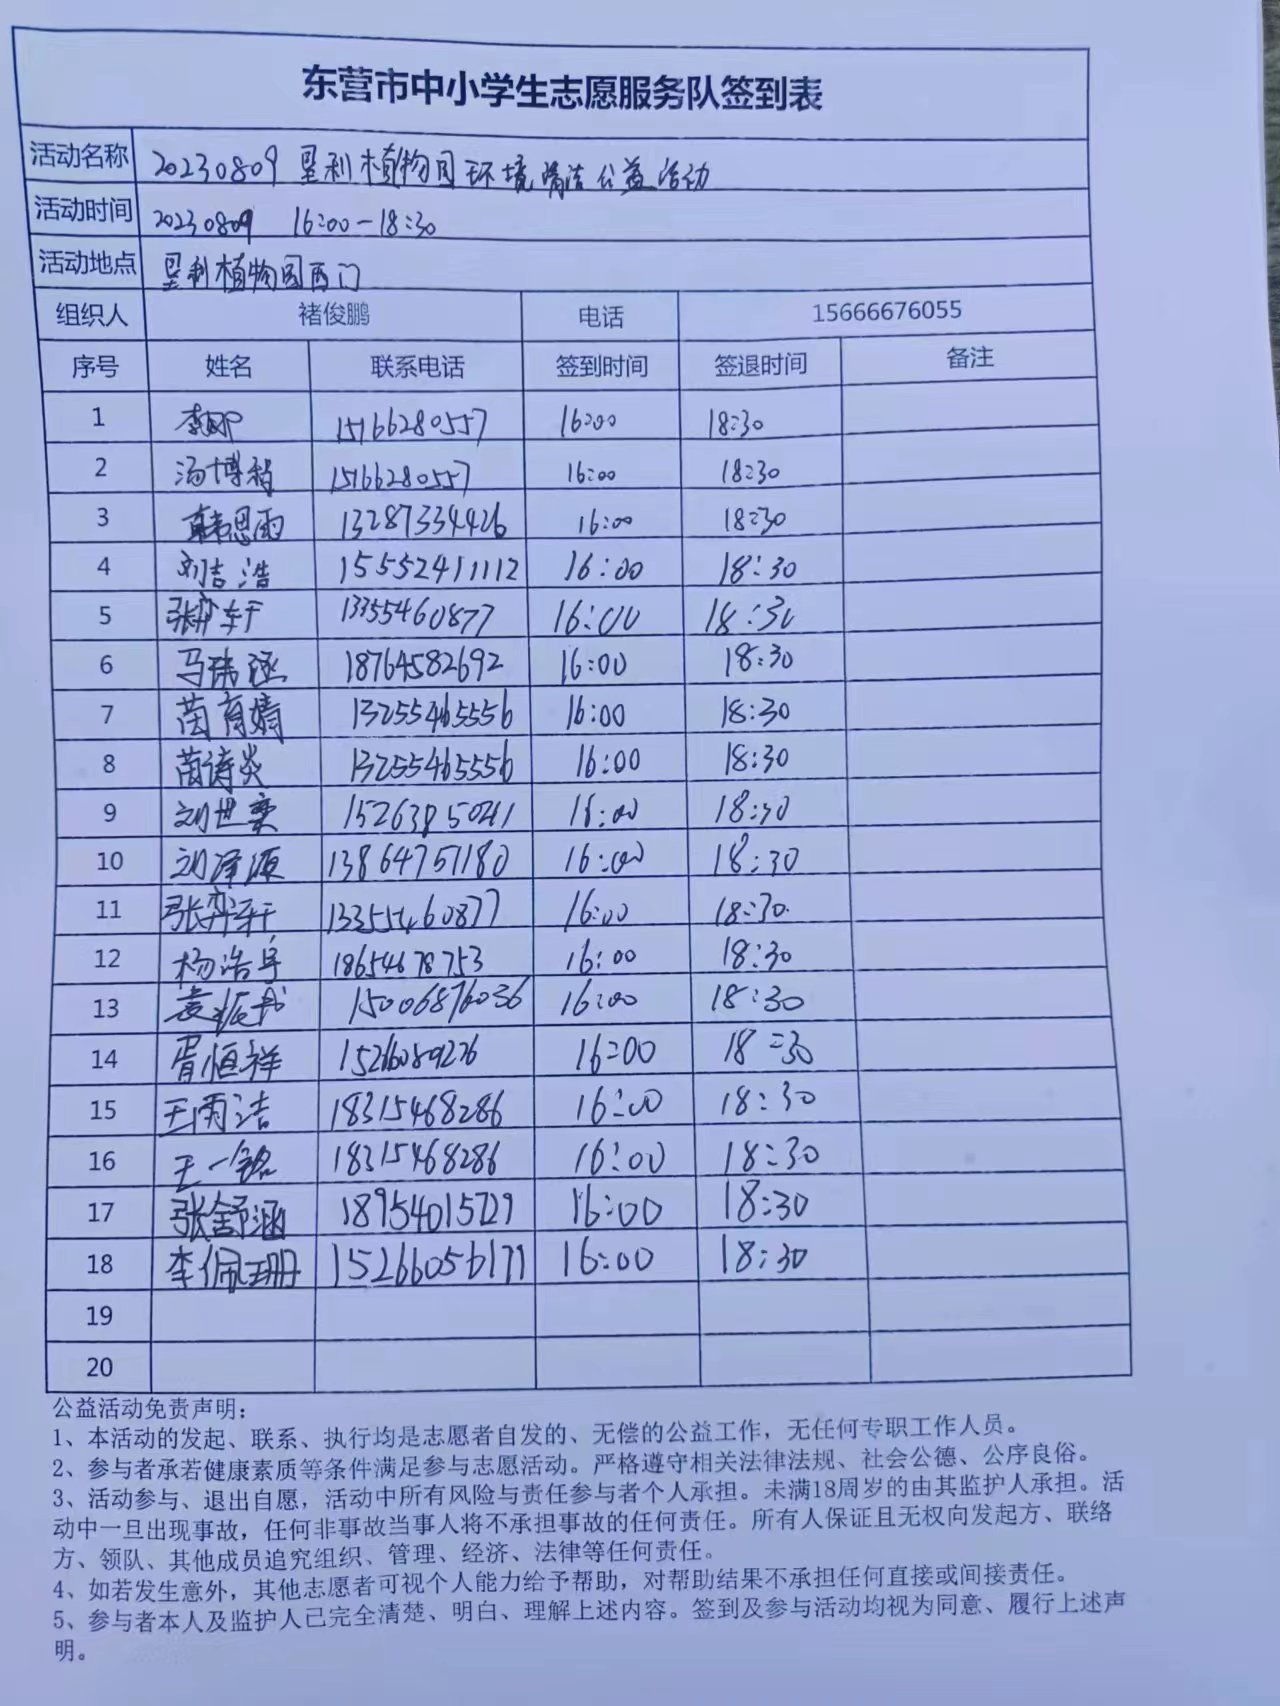 东营市中小学生志愿服务队签到表
活动名称 20230809 垦利植物园环境清洁公益活动
活动时间 20230809 16:00-18:30
活动地点 垦利植物园西门
组织人 褚俊鹏 电话 15666676055
序号 姓名 联系电话 签到时间 签退时间 备注
1 李娜 15166280557 16:00 18:30
2 汤博 15166280557 16:00 18:30
3 韩恩雨 13287334426 16:00 18:30
4 刘吉浩 15552411112 16:00 18:30
5 张弈轩 13355460877 16:00 18:30
6 马瑞涵 18764582692 16:00 18:30
7 苗育婧 13255465556 16:00 18:30
8 苗诗炎 13255465556 16:00 18:30
9 刘世奕 16:00 18:30
10 刘泽源 13864757180 16:00 18:30
11 张弈轩 13355460877 16:00 18:30
12 杨浩宇 18654678753 16:00 18:30
13 袁 15006876036 16:00 18:30
14 胥恒祥 16:00 18:30
15 王雨洁 18315468286 16:00 18:30
16 王一铭 18315468286 16:00 18:30
17 张舒涵 18954015729 16:00 18:30
18 李佩珊 15266056177 16:00 18:30
19
20
公益活动免责声明：
1、本活动的发起、联系、执行均是志愿者自发的、无偿的公益工作，无任何专职工作人员。
2、参与者承若健康素质等条件满足参与志愿活动。严格遵守相关法律法规、社会公德、公序良俗。
3、活动参与、退出自愿，活动中所有风险与责任参与者个人承担。未满18周岁的由其监护人承担。活
动中一旦出现事故，任何非事故当事人将不承担事故的任何责任。所有人保证且无权向发起方、联络
方、领队、其他成员追究组织、管理、经济、法律等任何责任。
4、如若发生意外，其他志愿者可视个人能力给予帮助，对帮助结果不承担任何直接或间接责任。
5、参与者本人及监护人已完全清楚、明白、理解上述内容。签到及参与活动均视为同意、履行上述声
明。